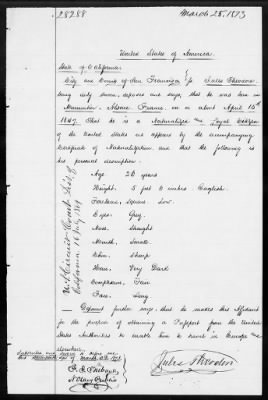 28288
March 28, 1873
United States of America
State of California
City and County of San Francisco } ss Jules Theodore
being duly sworn, deposes and says, that he was born in
Alsace, France, on or about April 15th
1847. That he is a Naturalized and Loyal Citizen
of the United States as appears by the accompanying
Certificate of Naturalization and that the following is
his personal description.
Age 26 years
Height. 5 feet 6 inches English.
Forehead, Square Low.
Eyes. Grey.
Nose, Straight
Mouth, Small
Chin, Sharp
Hair, Very Dark
Complexion, Fair
Face, Long
Deponent further says, that he makes this Affidavit
for the purpose of obtaining a Passport from the United
States Authorities to enable him to travel in Europe and
elsewhere.
Subscribed and sworn to before me
this day of March A.D. 1873
Notary Public
Jules Theodore
U.S. Circuit Court Dist. of
California 16 July 1869